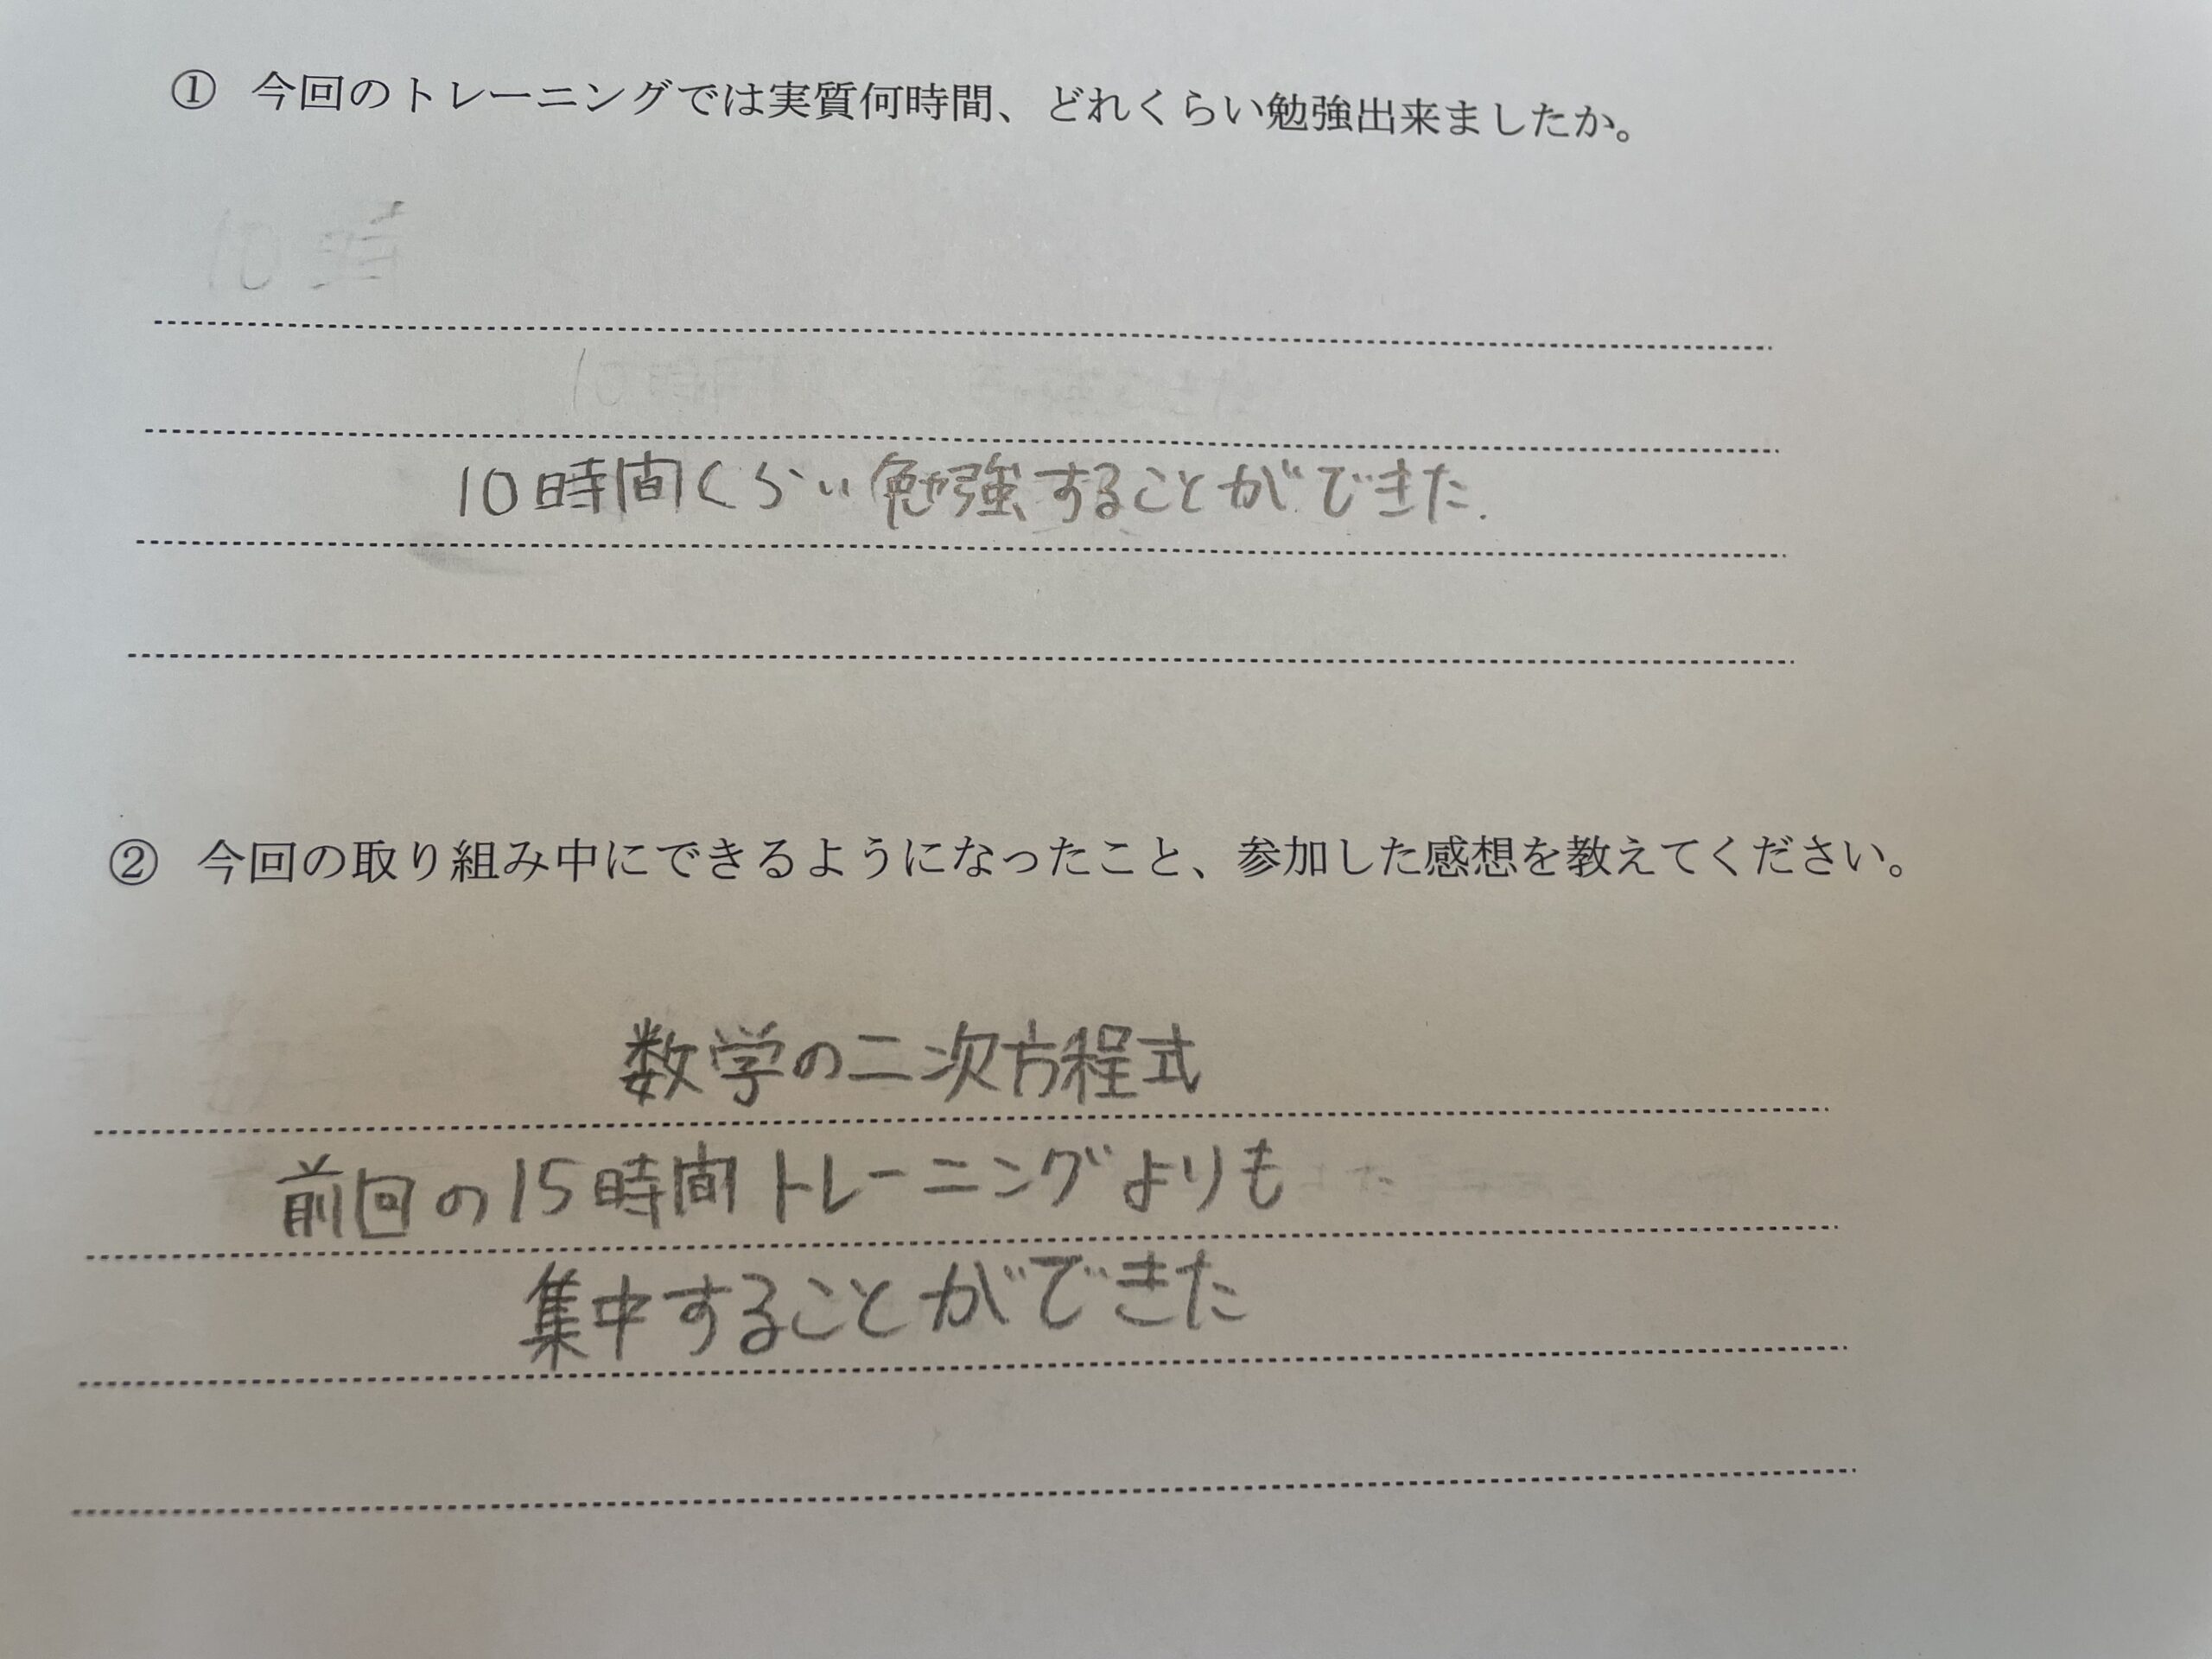 ① 今回のトレーニングでは実質何時間、どれくらい勉強出来ましたか。
10時間くらい勉強することができた.
② 今回の取り組み中にできるようになったこと、参加した感想を教えてください。
数学の二次方程式
前回の15時間トレーニングよりも
集中することができた